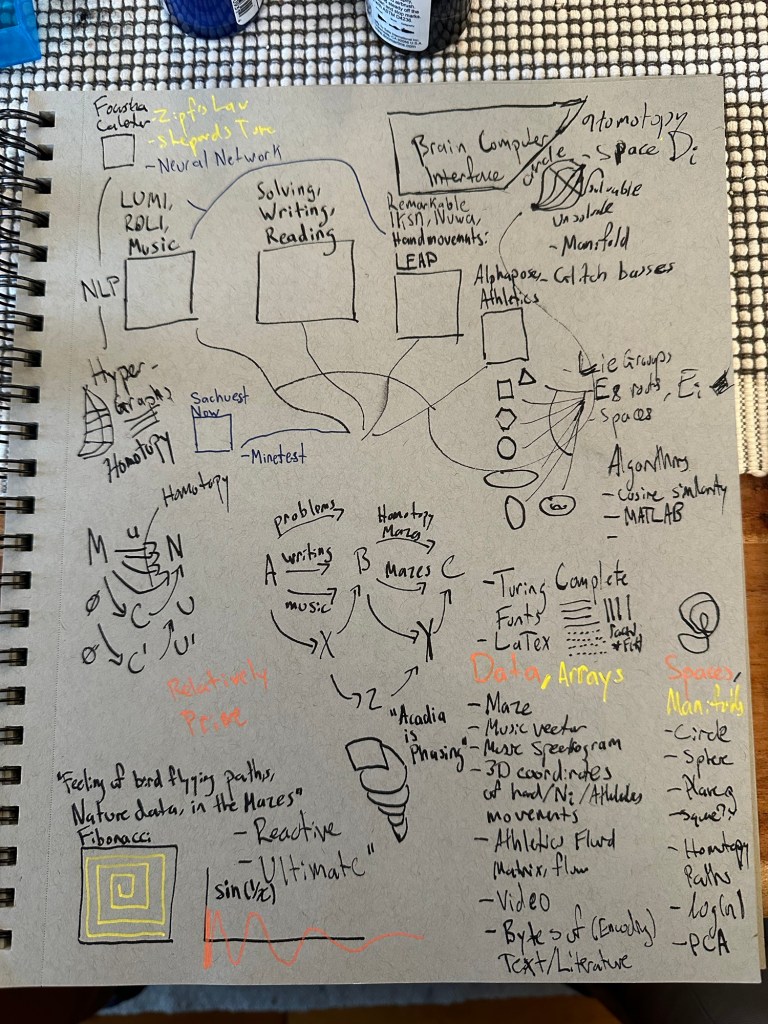 - Zipf's Law
- Sheperds Tone
- Neural Network
LUMI,
ROLI,
Music
Solving,
Writing,
Reading
Brain Computer
Interface
Remarkable
Nuwa,
Hand movements:
LEAP
Circle
- Space Di
Unsolvable
- Manifold
- Glitch basses
Alphapose
Athletics
NLP
Hyper-
Graphs
Homotopy
Sachuest
Now
- Minetest
- Lie Groups
E8 roots, Ei
- Spaces
Algorithms
- Cosine similarity
- MATLAB
-
Homotopy
M u N
Ø C U
Ø C' U'
problems
Homotopy
Maze
A writing B Mazes C
music
X Y
Z
- Turing Complete
Fonts
- LaTex
Relatively
Prime
"Acadia
is
Phasing"
Data, Arrays
- Maze
- Music vector
- Music Spectrogram
- 3D coordinates
of hand/Ni/Athletes
movements
- Athletics Fluid
Matrix, flow
- Video
- Bytes of (Encoding)
Text/Literature
Spaces,
Manifolds
- Circle
- Sphere
- Plane,
- Homotopy
Paths
- Log(n)
- PCA
"Feeling of bird flying paths,
Nature data, in the Mazes"
Fibonacci
- Reactive
- Ultimate"
sin(1/x)